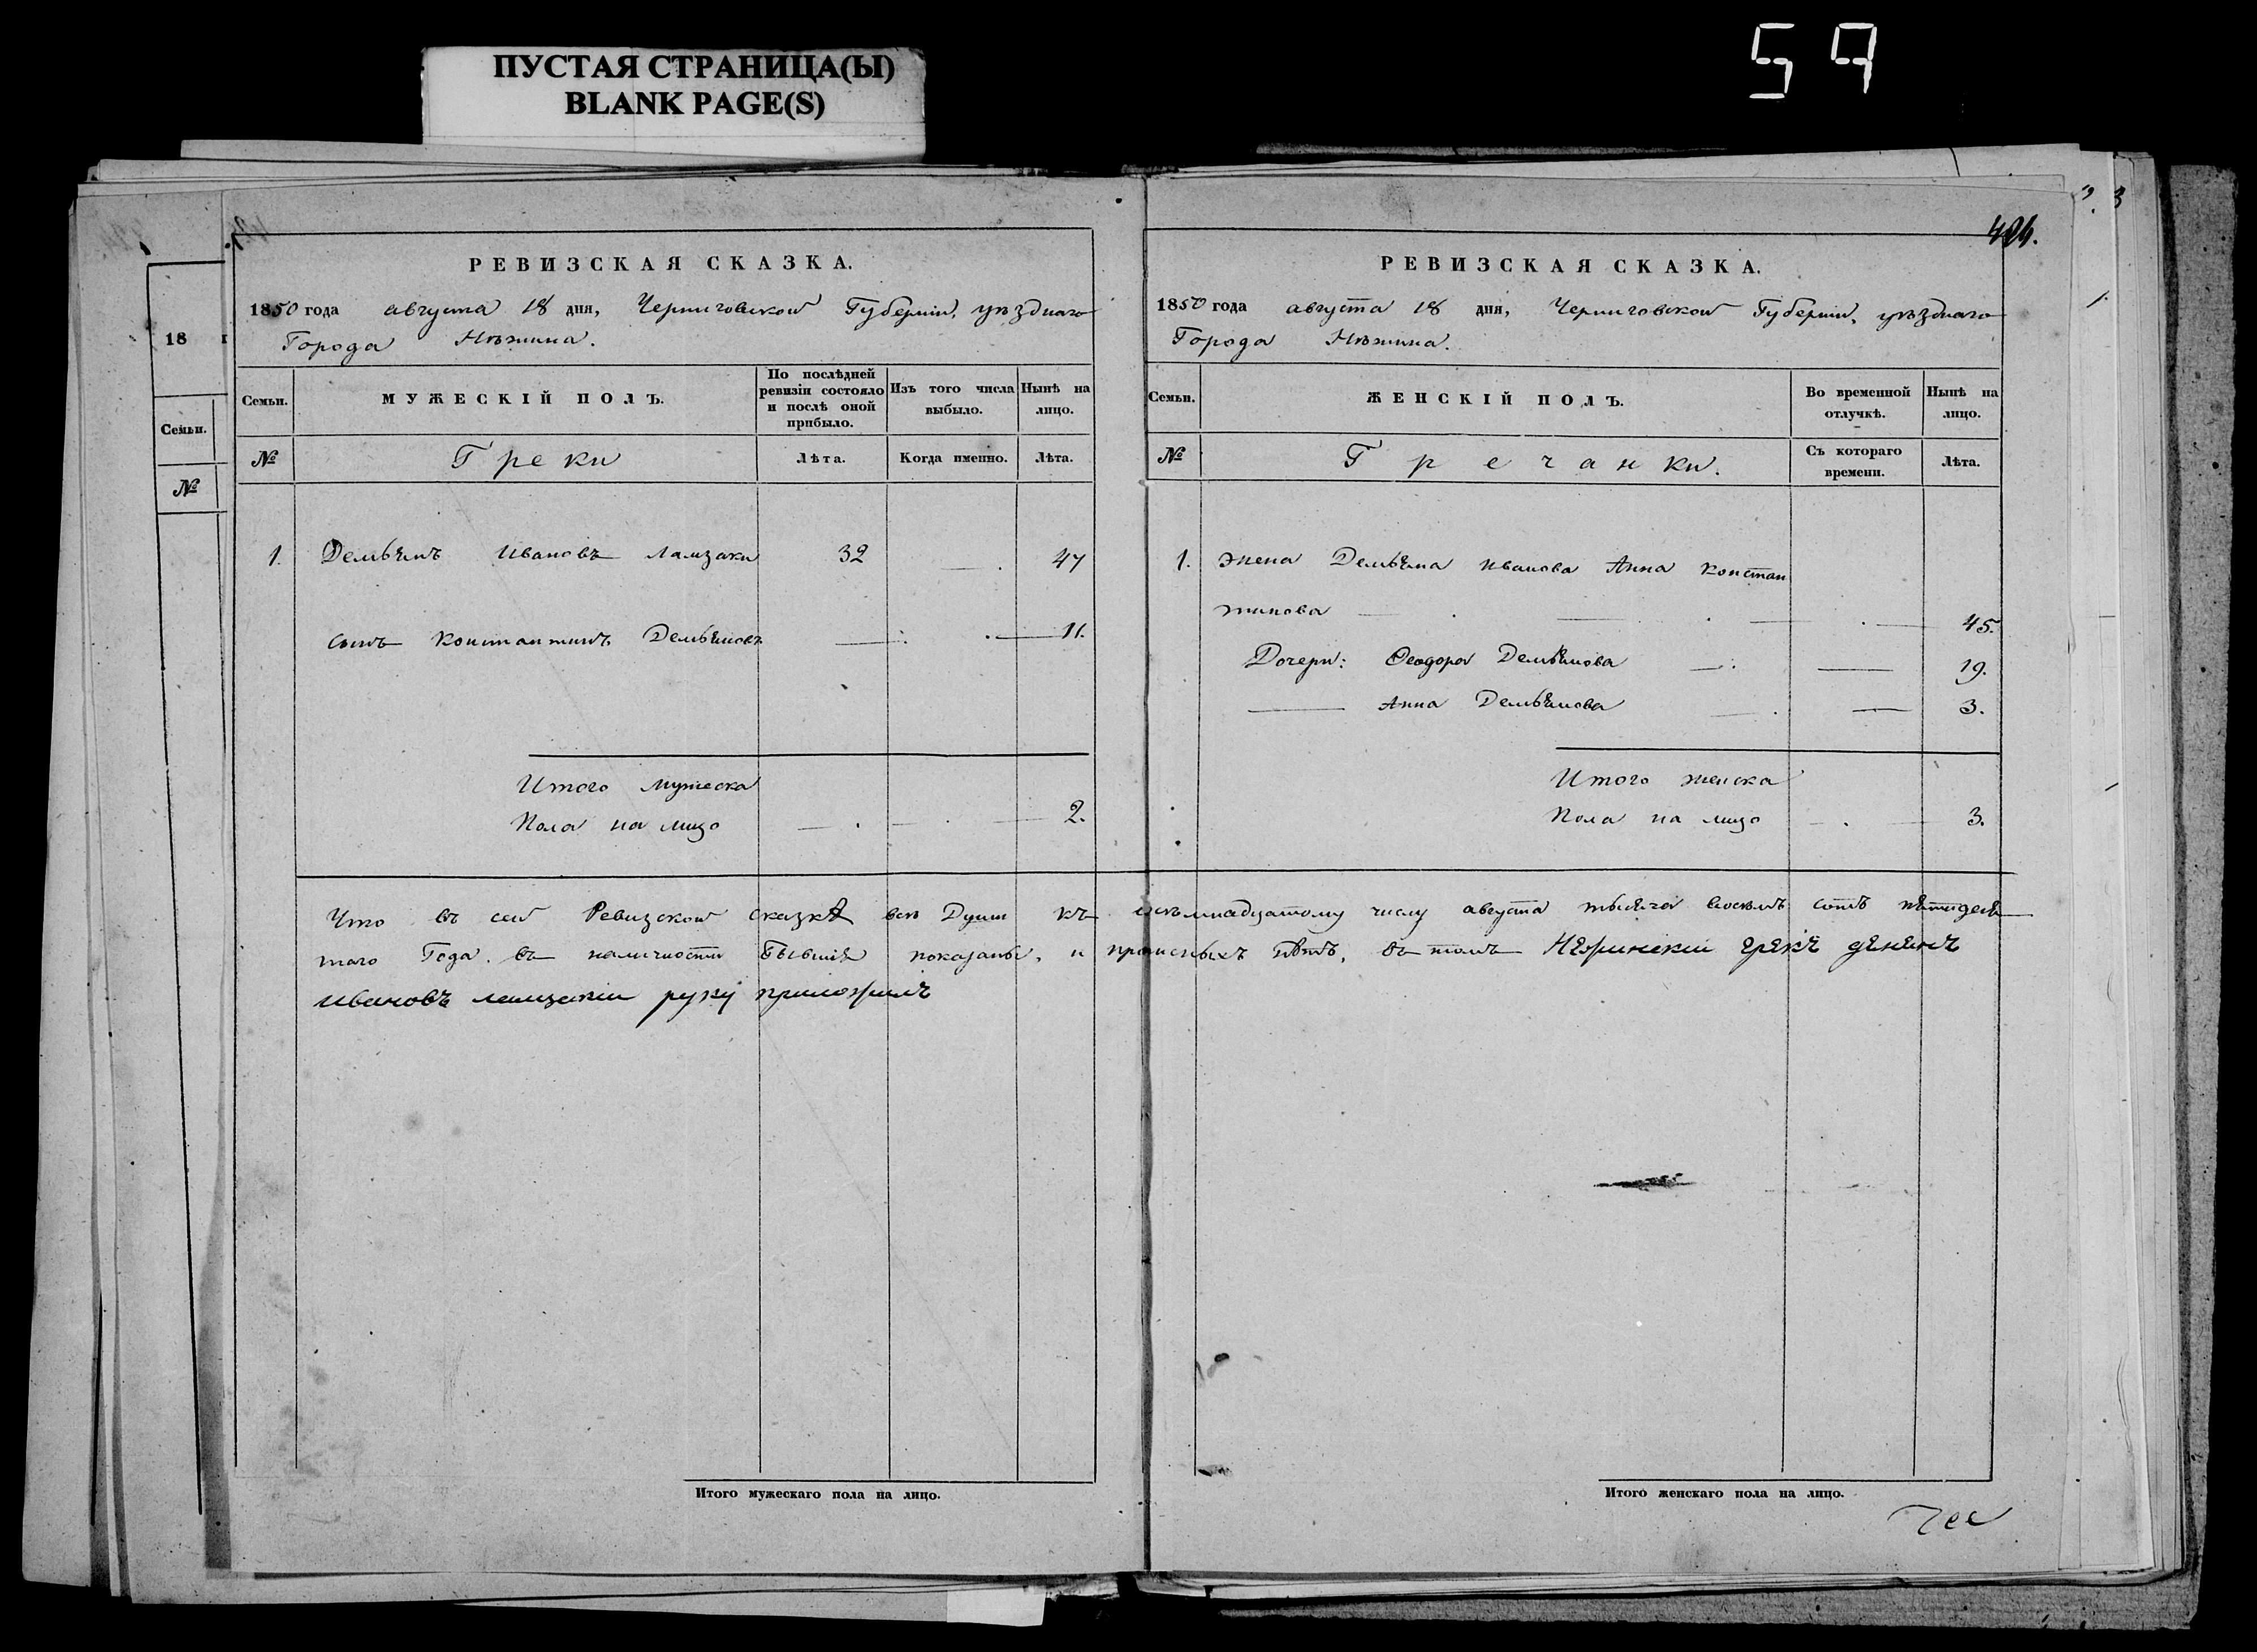 ПУСТАЯ СТРАНИЦА(Ы)
BLANK PAGE(S)
59
18
Семьи.
№
РЕВИЗСКАЯ СКАЗКА.
1850 года августа 18 дня, Черниговской Губернiи, уѣзднаго
Города Нѣжина.
Семьи. МУЖЕСКIЙ ПОЛЪ. По послѣдней ревизiи состояло и послѣ оной прибыло. Изъ того числа выбыло. Нынѣ на лицо.
№ Греки Лѣта. Когда именно. Лѣта.
1. Демьянъ Ивановъ Ламзаки 32 47
сынъ Константинъ Демьяновъ 11.
Итого мужеска
Пола на лицо 2.
Итого мужескаго пола на лицо.
РЕВИЗСКАЯ СКАЗКА.
1850 года августа 18 дня, Черниговской Губернiи, уѣзднаго
Города Нѣжина.
Семьи. ЖЕНСКIЙ ПОЛЪ. Во временной отлучкѣ. Нынѣ на лицо.
№ Гречанки. Съ котораго времени. Лѣта.
1. Жена Демьяна Иванова Анна Констан
тинова 45.
Дочери: Ѳеодора Демьянова 19.
Анна Демьянова 3.
Итого женска
Пола на лицо 3.
Что въ сей Ревизской сказкѣ всѣ Души къ осьмнадцатому числу августа тысяча восемь сотъ пятидеся
таго Года въ наличности бывшiя показаны, и прописныхъ нѣтъ, въ томъ Нежинскiи грекъ
Ивановъ ламзакiи руку приложилъ
Итого женскаго пола на лицо.